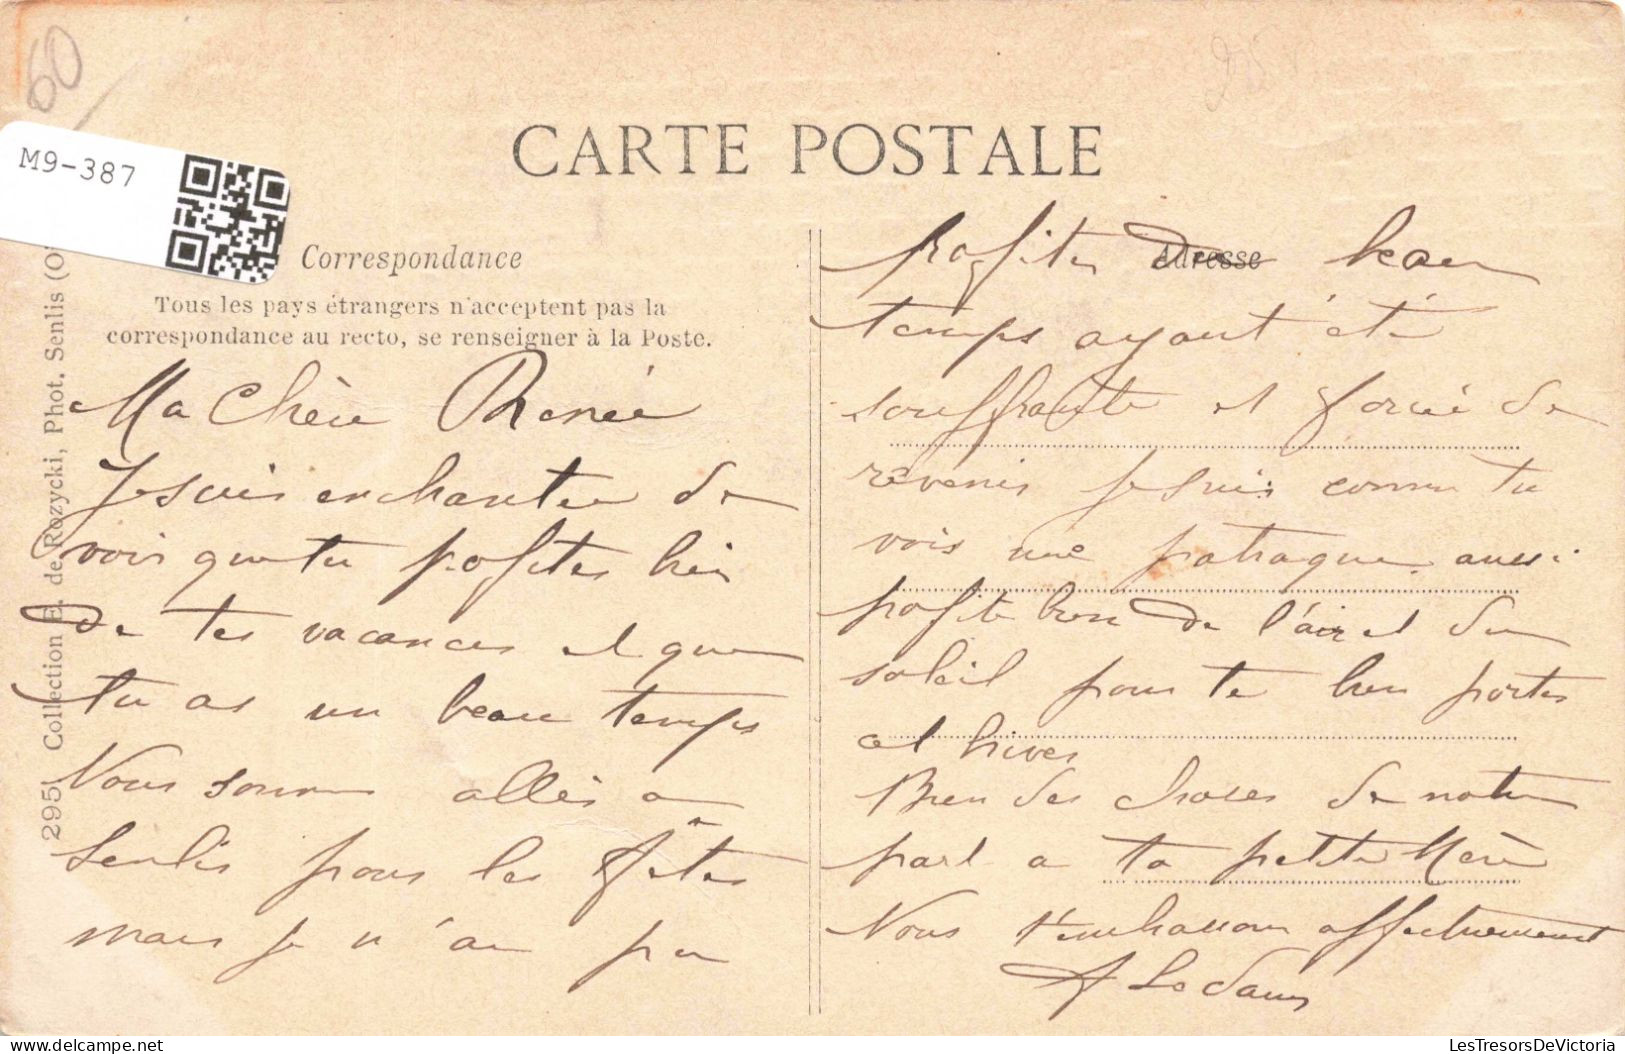 60
M9-387
CARTE POSTALE
Correspondance
Tous les pays étrangers n'acceptent pas la
correspondance au recto, se renseigner à la Poste.
295 Collection E. de Rozycki, Phot. Senlis (Oi
Ma Chère Renée
Je suis enchantée de
voir que tu profites bien
de tes vacances et que
tu as un beau temps
Nous sommes allés à
Senlis pour les fêtes
mais je n'ai pu
Adresse
profiter du beau
temps ayant été
souffrante et forcée de
revenir je suis comme tu
vois une patraque. aussi
profite bien de l'air et du
soleil pour te bien porter
cet hiver
Bien des choses de notre
part a ta petite Mère
Nous t'embrassons affectueusement
LesTresorsDeVictoria
delcampe.net